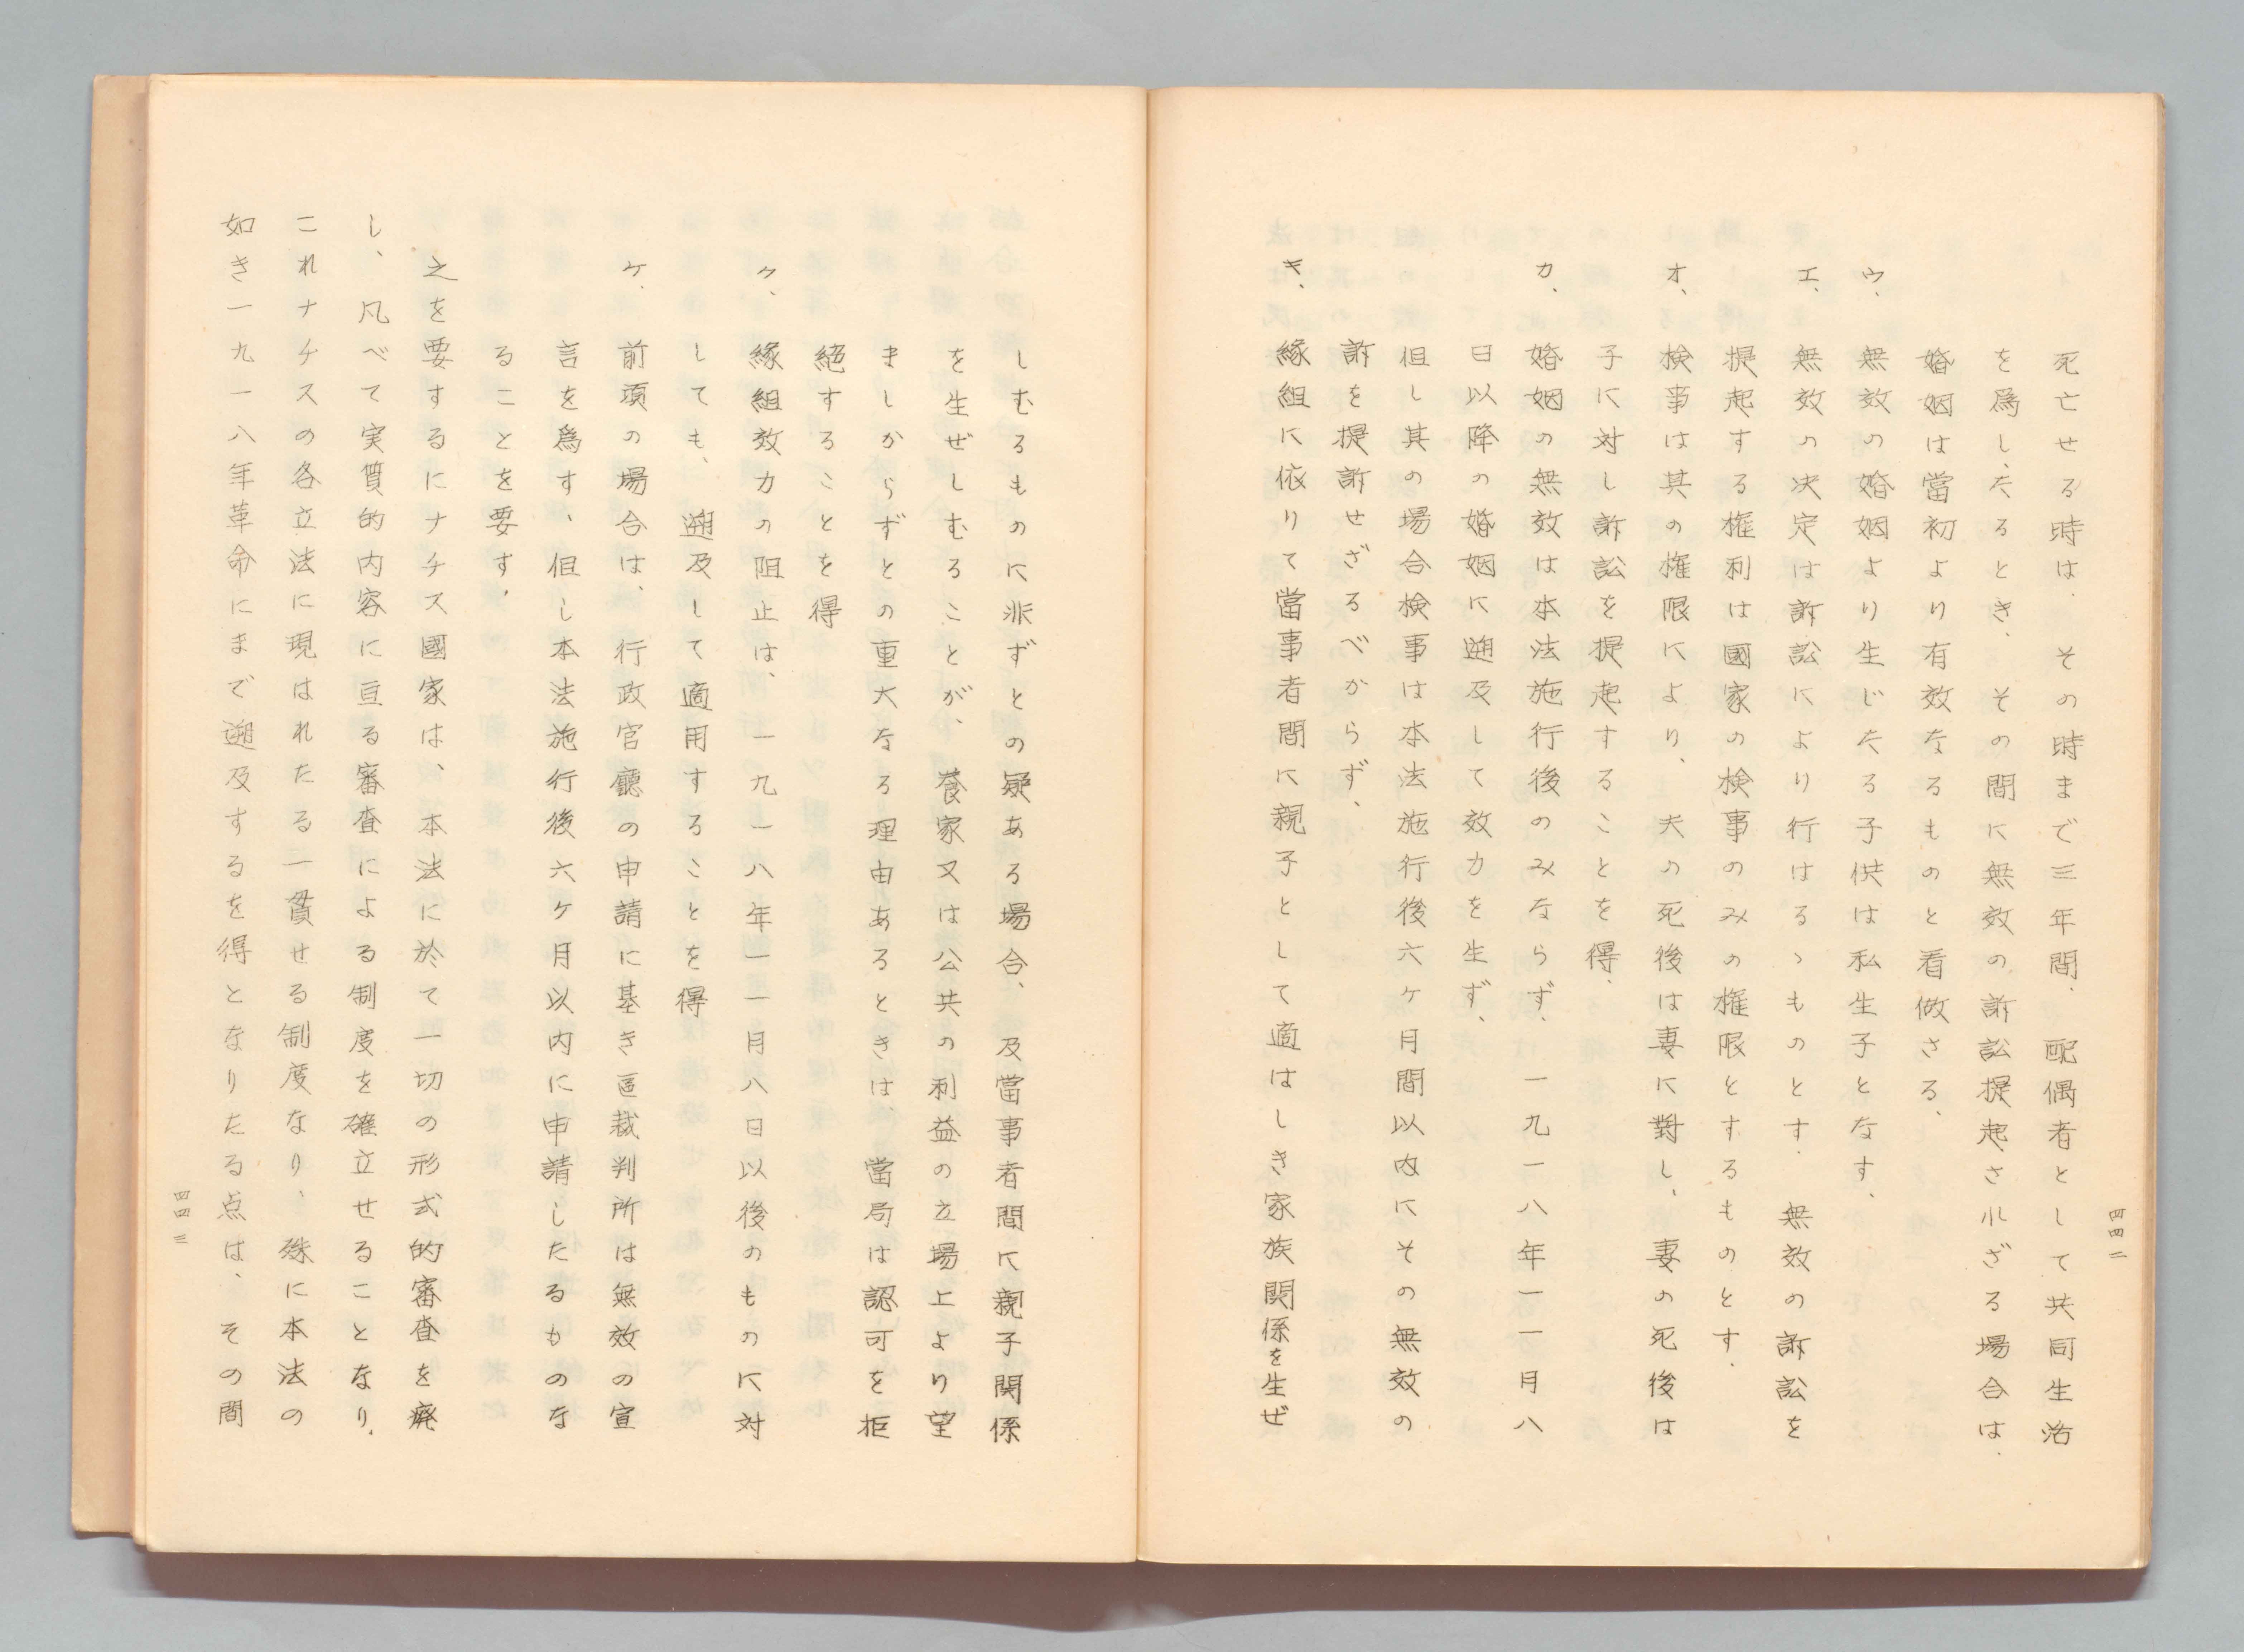 四四二
死亡せる時は、その時まで三年間、配偶者として共同生活
を爲したるとき、その間に無效の訴訟提起されざる場合は、
婚姻は當初より有效なるものと看做さる、
ウ、無效の婚姻より生じたる子供は私生子となす、
エ、無效の决定は訴訟により行はるゝものとす、無效の訴訟を
提起する権利は國家の検事のみの権限とするものとす、
オ、検事は其の権限により、夫の死後は妻に對し、妻の死後は
子に対し訴訟を提起することを得、
カ、婚姻の無效は本法施行後のみならず、一九一八年一一月八
日以降の婚姻に遡及して效力を生ず、
但し其の場合検事は本法施行後六ヶ月間以内にその無效の
訴を提訴せざるべからず、
キ、緣組に依りて當事者間に親子として適はしき家族関係を生ぜ
しむるものに非ずとの疑ある場合、及當事者間に親子関係
を生ぜしむることが、養家又は公共の利益の立場上より望
ましからずとの重大なる理由あるときは、當局は認可を拒
絕することを得
ク、緣組效力の阻止は、一九一八年一一月八日以後のものに対
しても、遡及して適用することを得
ケ、前項の場合は、行政官廳の申請に基き區裁判所は無效の宣
言を爲す、但し本法施行後六ヶ月以内に申請したるものな
ることを要す、
之を要するにナチス國家は、本法に於て一切の形式的審査を廃
し、凡べて実質的内容に亘る審査による制度を確立せることなり、
これナチスの各立法に現はれたる一貫せる制度なり、殊に本法の
如き一九一八年革命にまで遡及するを得となりたる点は、その間
四四三